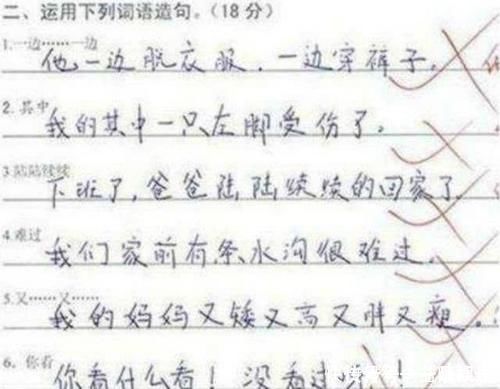 二、运用下列词语造句。(18分)
1.一边……一边
他一边脱衣服,一边穿裤子。
2.其中
我的其中一只左脚受伤了。
3陆陆续续
下班了,爸爸陆陆续续的回家了
4.难过
我们家前有条水沟很难过。
5.又……又……
我的妈妈又矮又高又胖又瘦。
6.你看
你看什么看!没看过